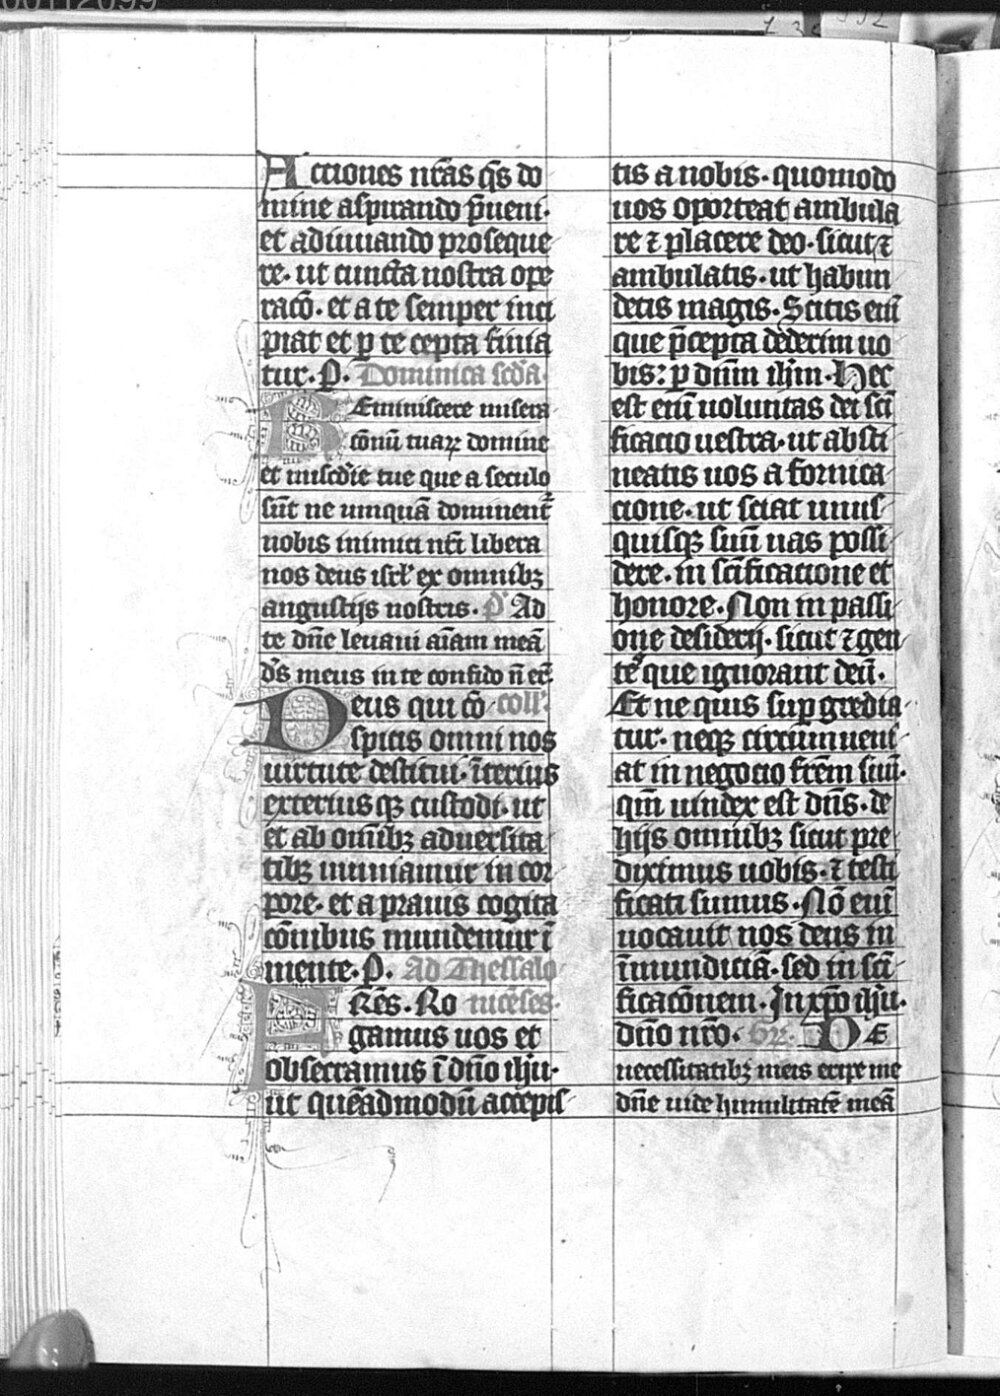 00112099
Acciones nr̄as qs̄ do
mine aspirando p̄ueni·
et adiuuando proseque
re· ut cuncta nostra ope
racō· et a te semper inci
piat et ꝑ te cepta finia
tur· P· Dominica scd̄a·
Reminiscere misera
cōnū tuaꝝ domine
et miscd̄ie tue que a seculo
sūt ne umquā dominent᷑
nobis inimici nr̄i libera
nos deus isrl̄ ex omnibꝫ
angustijs nostris· p̄s Ad
te dn̄e leuaui aīam meā
ds̄ meus in te confido n̄ er̄
Deus qui cō coll̄·
spicis omni nos
uirtute destitui· īterius
exteriusqꝫ custodi· ut
et ab om̄ibꝫ aduersita
tibꝫ muniamur in cor
pore· et a prauis cogita
cōnibus mundemur ī
mente· P· Ad Thessalo
FRēs· Ro nicēses·
gamus uos et
obsecramus ī dn̄o ihū·
ut quēadmodū accepis
tis a nobis· quomodo
uos oporteat ambula
re ⁊ placere deo· sicut ⁊
ambulatis· ut habun
detis magis· Scitis enī
que p̄cepta dederim uo
bis: ꝑ dn̄m ihm̄· Hec
est enī uoluntas dei scī
ficacio uestra· ut absti
neatis uos a fornica
cione· ut sciat unus
quisqꝫ suū uas possi
dere· in scīficacione et
honore· Non in passi
one desiderij· sicut ⁊ gen
tes que ignorant deū·
Et ne quis suꝑgredia
tur· neqꝫ circumueni
at in negocio frēm suū·
qm̄ uindex est dn̄s· de
hijs omnibꝫ sicut pre
diximus uobis· ⁊ testi
ficati sumus· Nō enī
uocauit nos deus in
īmundiciā· sed in scī
ficacōnem· In xp̄o ihū·
dn̄o nr̄o· Gr̄· DE
necessitatibꝫ meis eripe me
dn̄e uide humilitatē meā